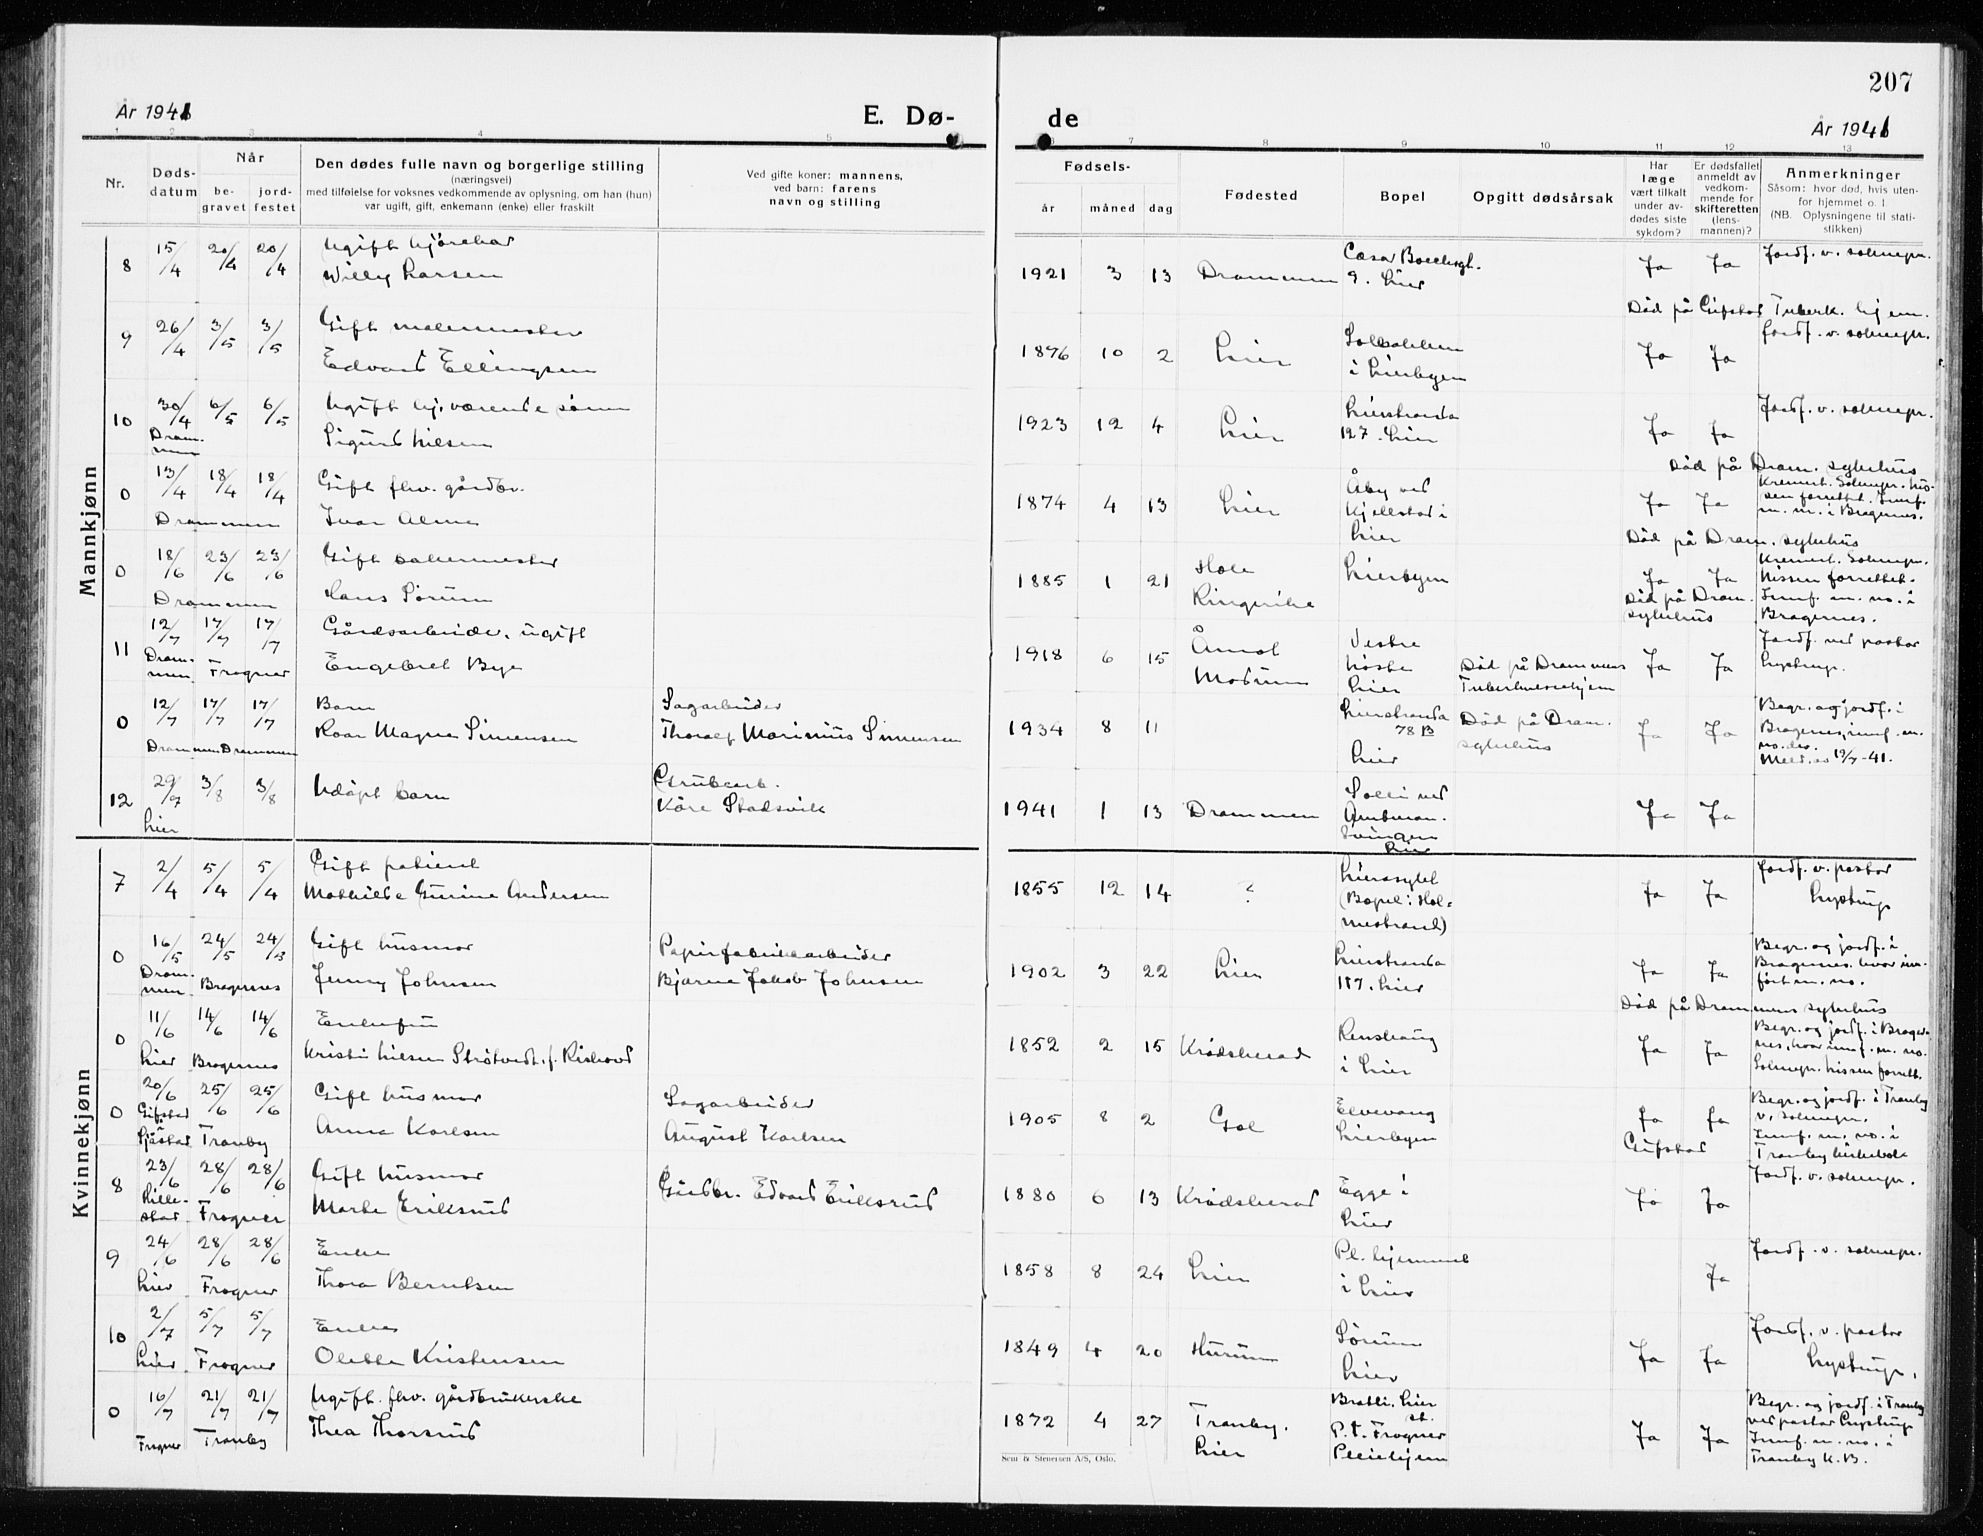 207
År 1941
E. Dø-
de
År 1941
1 2 3 4 5 7 8 9 10 11 12 13
Nr.
Døds-
datum
Når
be-
gravet
jord-
festet
Den dødes fulle navn og borgerlige stilling
(næringsvei)
med tilføielse for voksnes vedkommende av oplysning, om han (hun)
var ugift, gift, enkemann (enke) eller fraskilt
Ved gifte koner: mannens,
ved barn: farens
navn og stilling
Fødsels-
år måned dag
Fødested
Bopel
Opgitt dødsårsak
Har
læge
vært tilkalt
under av-
dødes siste
sykdom?
Er dødsfallet
anmeldt av
vedkom-
mende for
skifteretten
(lens-
mannen)?
Anmerkninger
Såsom: hvor død, hvis uten-
for hjemmet o. l
(NB. Oplysningene til stati-
stikken)
Mannkjønn
8 15/4 20/4 20/4 Ugift
Willy Larsen
1921 3 13 Drammen
9. Lier
Ja Ja
Jordf. v. soknepr.
Død på Gifstad Tuberk. hjem.
9 26/4 3/5 3/5 Gift malermester
Edvard Ellingsen
1896 10 2 Lier
i Lierbyen
Ja Ja
Jordf. v. soknepr.
10 30/4 6/5 6/5 Ugift hj. værende sønn
Dram-
men
Sigurd Nilsen
1923 12 4 Lier
Lierstranda
127. Lier
Ja Ja
Jordf. v. soknepr.
Død på Dram. sykehus
0 13/4 18/4 18/4 Gift fhv. gårdbr.
Drammen
Ivar Alme
1874 4 13 Lier
Åby ved
Kjellstad i
Lier
Ja Ja
Kremert. Soknepr. Nis-
sen forrettet. Innf.
m. nr. i Bragernes.
Død på Dram. sykehus
0 18/6 23/6 23/6 Gift bakermester
Drammen
Hans Sørum
1885 1 21 Hole
Ringerike
Lierbyen
Ja Ja
Død på Dram.
sykehus
Kremert. Soknepr.
Nissen forrettet.
Innf. m. no. i
Bragernes.
11 12/7 17/7 17/7 Gårdsarbeider, ugift
Dram-
men Frogner
Engebret Bye
1918 6 15 Åmot
Modum
Vestre
Høste
Lier
Død på Drammens
Tuberkulosehjem
Ja Ja
Jordf. ved pastor
Lystrup.
0 12/7 17/7 17/7 Barn
Drammen Drammen
Roar Magne Simensen
Sagarbeider
Thoralf Marinius Simensen
1934 8 11
Lierstranda
78 B
Lier
Død på Dram.
sykehus
Ja Ja
Begr. og jordf. i
Bragernes, innf. m.
no. der.
Meld. av 19/7-41.
12 29/7 3/8 3/8 Udøpt barn
Lier
Grubearb.
Kåre Stadsvik
1941 1 13 Drammen
Solli ved
Amtman-
svingen
Lier
Ja Ja
Kvinnekjønn
7 2/4 5/4 5/4 Gift patient
Mathilde Gurine Andersen
1855 12 14 ?
Lierasylet
(Bopel: Hol-
mestrand)
Ja Ja
Jordf. v. pastor
Lystrup
0 16/5 24/5 24/5 Gift husmor
Dram-
men Bragernes
Jenny Johnsen
Papirfabrikkarbeider
Bjarne Jakob Johnsen
1902 3 22 Lier
Lierstranda
187. Lier
Ja Ja
Begr. og jordf. i
Bragernes. hvor inn-
ført m. no.
Død på Drammens sykehus
0 11/6 14/6 14/6 Enkefru
Lier Bragernes
Kristi Nilsen Strøtvedt, f. Risbovd
1852 2 15 Krødsherad
Renskaug
i Lier
Ja Ja
Begr. og jordf. i Brager-
nes, hvor innf. m. no.
Soknepr. Nissen forrett.
0 20/6 25/6 25/6 Gift husmor
Gifstad
i
Sjåstad Tranby
Anna Karlsen
Sagarbeider
August Karlsen
1905 8 2 Gol
Elvevang
Lierbyen
Ja Ja
Gifstad
Begr. og jordf. i Tranby
v. soknepr.
Innf. m. no. i
Tranby kirkebok
8 23/6 28/6 28/6 Gift husmor
Kille-
stad Frogner
Marte Eriksrud
Gårdbr. Edvard Eriksrud
1880 6 13 Krødsherad
Egge i
Lier
Ja Ja
Jordf. v. soknepr.
9 24/6 28/6 28/6 Enke
Lier Frogner
Thora Berntsen
1858 8 24 Lier
Pl. hjemmet
i Lier
Ja
Jordf. v. soknepr.
10 2/7 5/7 5/7 Enke
Lier Frogner
Olette Kristensen
1849 4 20 Hurum
Sørum
Lier
Ja Ja
Jordf. v. pastor
Lystrup.
0 16/7 21/7 21/7 Ugift. fhv. gårdbrukerske
Frogner Tranby
Thea Thorsrud
1872 4 27 Tranby.
Lier
Bratli. Lier
st.
P.t. Frogner
Pleiehjem
Ja Ja
Begr. og jordf. i Tranby
ved pastor Lystrup
Innf. m. no. i
Tranby K.B.
Sem & Stenersen A/S, Oslo.